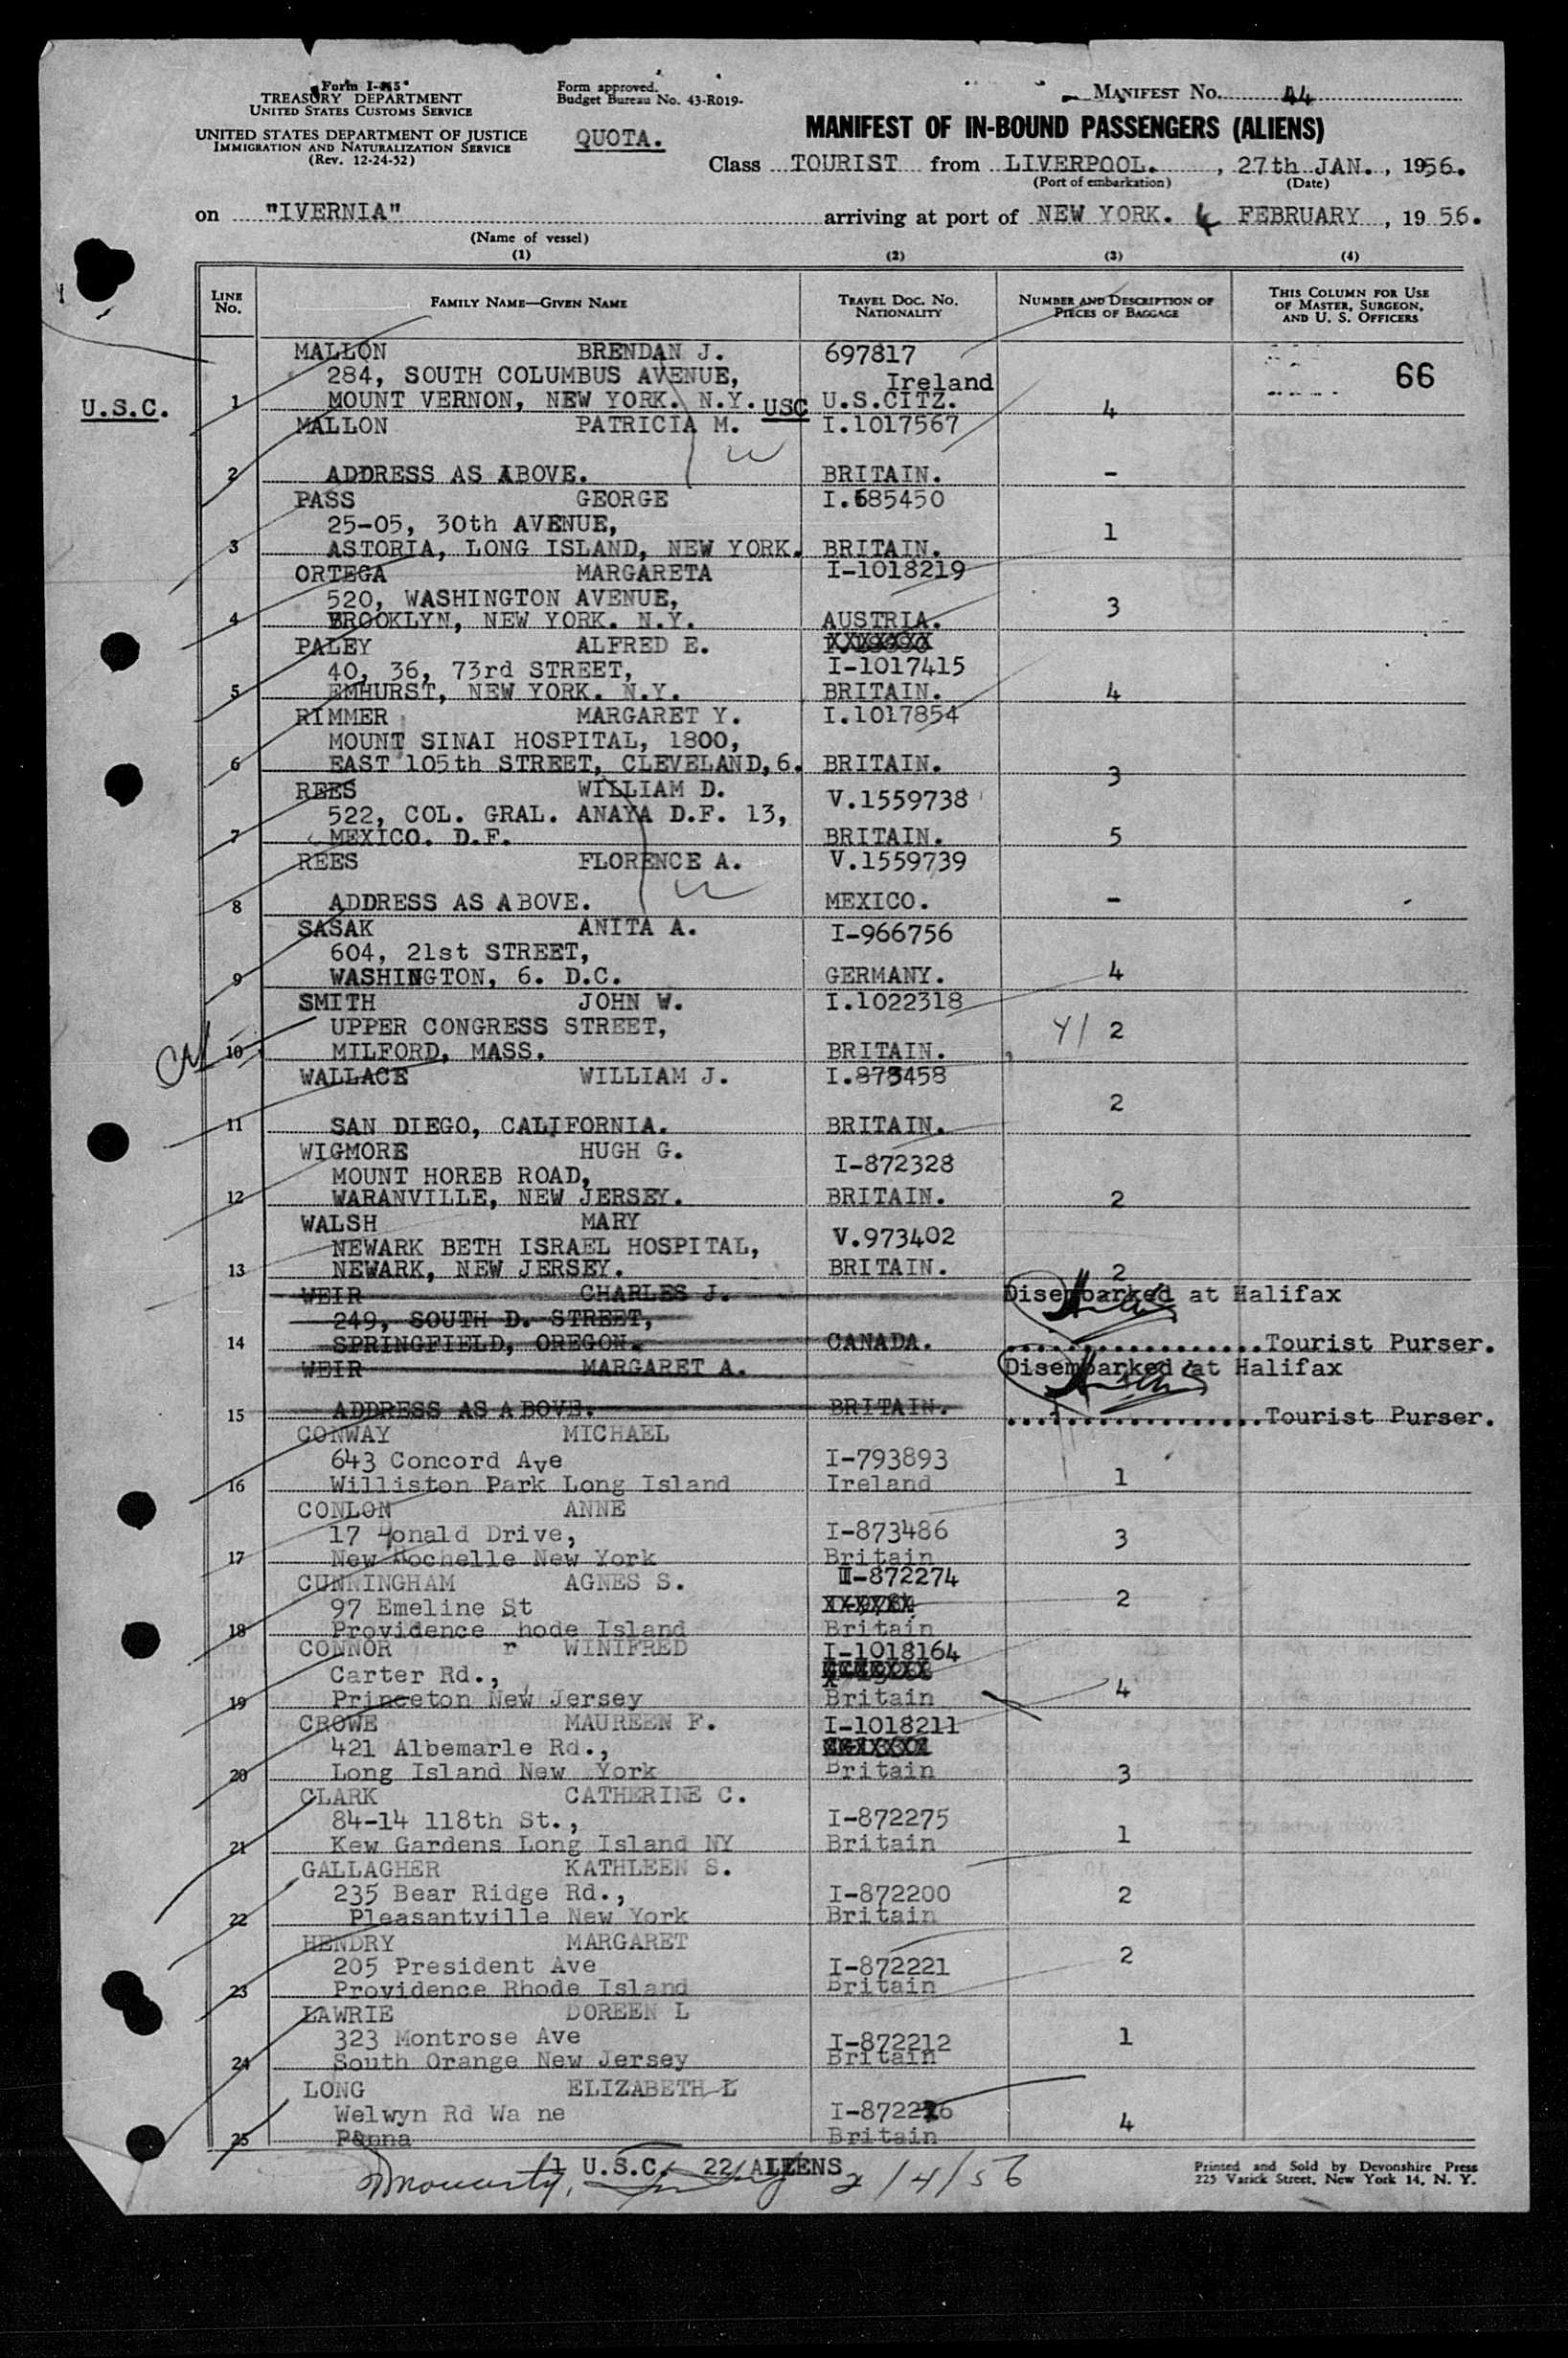 Form I-415
TREASURY DEPARTMENT
UNITED STATES CUSTOMS SERVICE
UNITED STATES DEPARTMENT OF JUSTICE
IMMIGRATION AND NATURALIZATION SERVICE
(Rev. 12-24-52)
Form approved.
Budget Bureau No. 43-R019.
QUOTA.
MANIFEST No. 44
MANIFEST OF IN-BOUND PASSENGERS (ALIENS)
Class TOURIST from LIVERPOOL. , 27th JAN. , 1956.
(Port of embarkation) (Date)
on "IVERNIA" arriving at port of NEW YORK. 4 FEBRUARY , 1956.
(Name of vessel)
(1) (2) (3) (4)
LINE No. FAMILY NAME—GIVEN NAME TRAVEL DOC. NO. NATIONALITY NUMBER AND DESCRIPTION OF PIECES OF BAGGAGE THIS COLUMN FOR USE OF MASTER, SURGEON, AND U. S. OFFICERS
MALLON BRENDAN J. 697817
284, SOUTH COLUMBUS AVENUE, Ireland 66
U.S.C. 1 MOUNT VERNON, NEW YORK. N.Y. USC U.S.CITZ. 4
MALLON PATRICIA M. I.1017567
2 ADDRESS AS ABOVE. BRITAIN. -
PASS GEORGE I.685450
25-05, 30th AVENUE, 1
3 ASTORIA, LONG ISLAND, NEW YORK. BRITAIN.
ORTEGA MARGARETA I-1018219
520, WASHINGTON AVENUE, 3
4 BROOKLYN, NEW YORK. N.Y. AUSTRIA.
PALEY ALFRED E.
40, 36, 73rd STREET, I-1017415
5 EMHURST, NEW YORK. N.Y. BRITAIN. 4
RIMMER MARGARET Y. I.1017854
MOUNT SINAI HOSPITAL, 1800,
6 EAST 105th STREET, CLEVELAND,6. BRITAIN. 3
REES WILLIAM D. V.1559738
522, COL. GRAL. ANAYA D.F. 13,
7 MEXICO. D.F. BRITAIN. 5
REES FLORENCE A. V.1559739
8 ADDRESS AS ABOVE. MEXICO. -
SASAK ANITA A. I-966756
604, 21st STREET,
9 WASHINGTON, 6. D.C. GERMANY. 4
SMITH JOHN W. I.1022318
UPPER CONGRESS STREET, 2
10 MILFORD, MASS. BRITAIN.
WALLACE WILLIAM J. I.873458
2
11 SAN DIEGO, CALIFORNIA. BRITAIN.
WIGMORE HUGH G. I-872328
MOUNT HOREB ROAD,
12 WARANVILLE, NEW JERSEY. BRITAIN. 2
WALSH MARY V.973402
NEWARK BETH ISRAEL HOSPITAL,
13 NEWARK, NEW JERSEY. BRITAIN. 2
WEIR CHARLES J. Disembarked at Halifax
249, SOUTH D. STREET,
14 SPRINGFIELD, OREGON. CANADA. ..................Tourist Purser.
WEIR MARGARET A. Disembarked at Halifax
15 ADDRESS AS ABOVE. BRITAIN. ..................Tourist Purser.
CONWAY MICHAEL
643 Concord Ave I-793893
16 Williston Park Long Island Ireland 1
CONLON ANNE
17 Donald Drive, I-873486 3
17 New Rochelle New York Britain
CUNNINGHAM AGNES S. I-872274
97 Emeline St 2
18 Providence hode Island Britain
CONNOR r WINIFRED I-1018164
Carter Rd.,
19 Princeton New Jersey Britain 4
CROWE MAUREEN F. I-1018211
421 Albemarle Rd.,
20 Long Island New York Britain 3
CLARK CATHERINE C.
84-14 118th St., I-872275
21 Kew Gardens Long Island NY Britain 1
GALLAGHER KATHLEEN S.
235 Bear Ridge Rd., I-872200 2
22 Pleasantville New York Britain
HENDRY MARGARET
205 President Ave I-872221 2
23 Providence Rhode Island Britain
LAWRIE DOREEN L
323 Montrose Ave I-872212 1
24 South Orange New Jersey Britain
LONG ELIZABETH L
Welwyn Rd Wa ne 4
25 Penna Britain
1 U.S.C. 22 ALIENS 2/4/56
Printed and Sold by Devonshire Press
225 Varick Street, New York 14, N. Y.